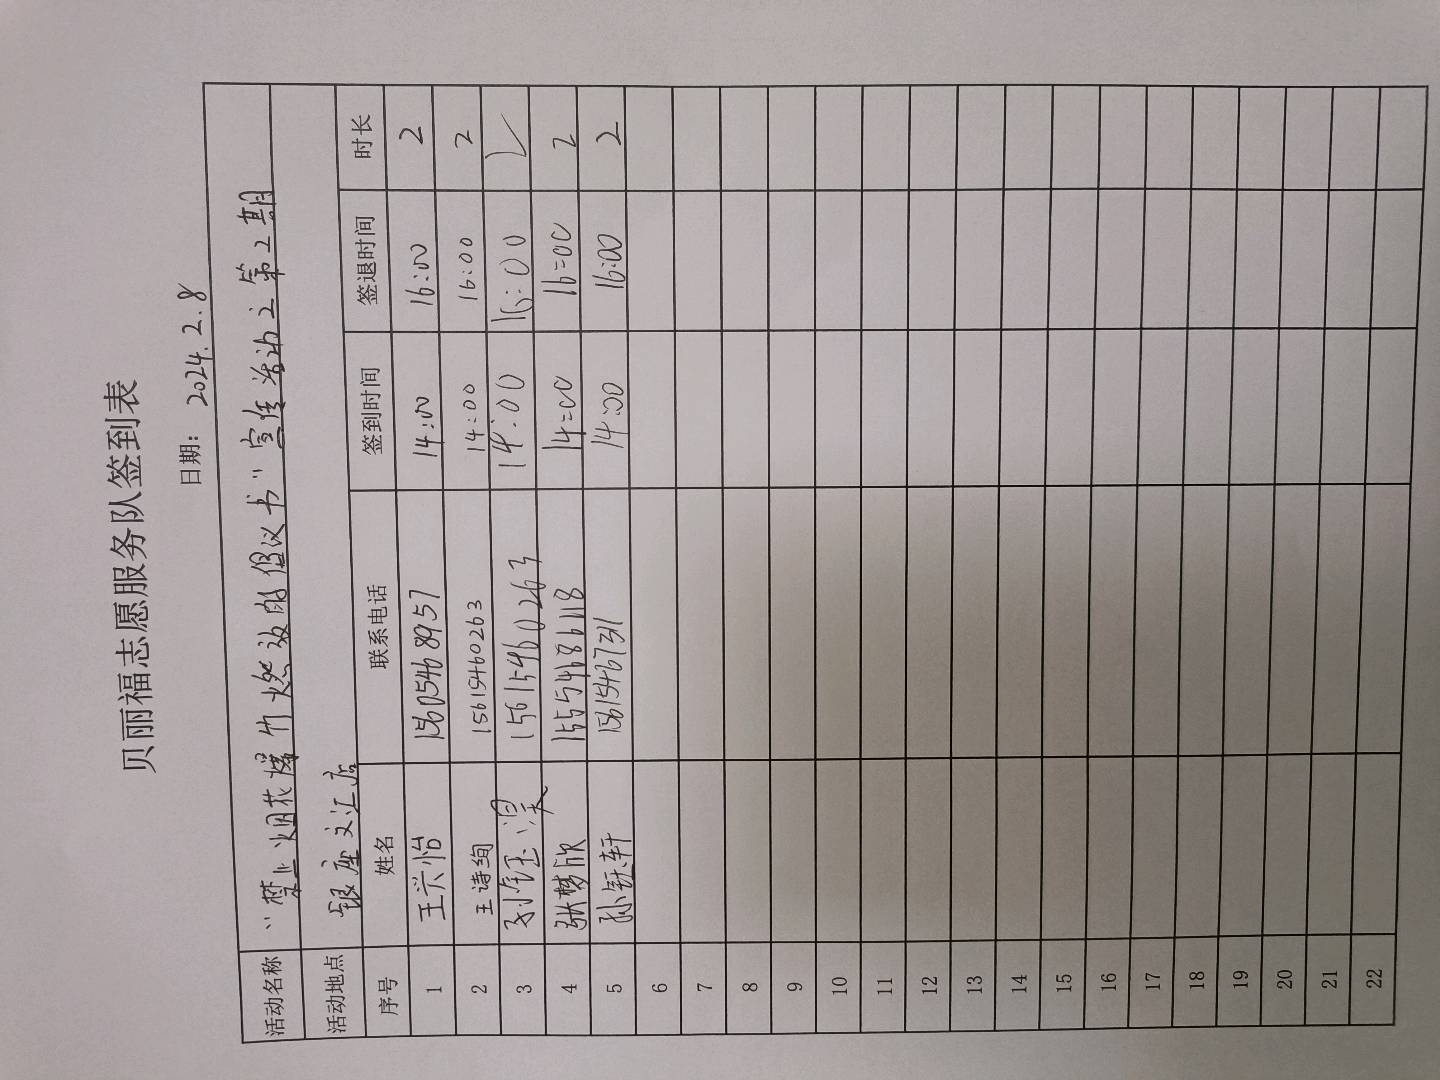 贝丽福志愿服务队签到表
日期: 2024.2.8
活动名称 "禁止烟花爆竹燃放的倡议书"宣传活动之第2期
活动地点 银座文汇店
序号 姓名 联系电话 签到时间 签退时间 时长
1 王兴怡 15605468957 14:00 16:00 2
2 王诗绚 15615460263 14:00 16:00 2
3 孙钰淏 15615460263 14:00 16:00
4 张梦欣 15554686118 14=00 16=00 2
5 孙钰轩 15615467311 14:00 16:00 2
6
7
8
9
10
11
12
13
14
15
16
17
18
19
20
21
22